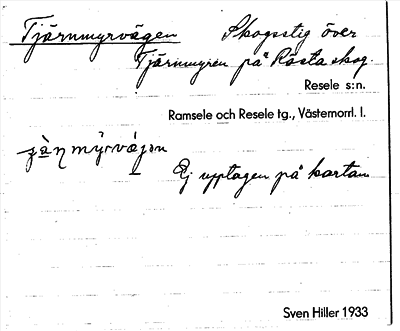 Tjärnmyrvägen Skogsstig över
Tjärnmyren på Rösta skog.
Resele s:n.
Ramsele och Resele tg., Västernorrl. l.
Ej upptagen på kartan
Sven Hiller 1933